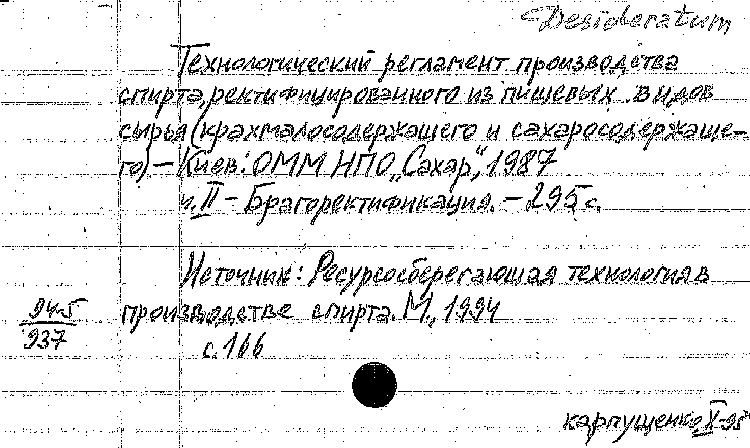 Desideratum
Технологический регламент производства
спирта, ректифицированного из пищевых видов
сырья (крахмалосодержащего и сахаросодержаще-
го) – Киев: ОММ НПО „Сахар", 1987
ч. II – Брагоректификация. – 295 с.
Источник: Ресурсосберегающая технология в
производстве спирта. М., 1994
с. 166
94-5
937
Карпущенко, X-95